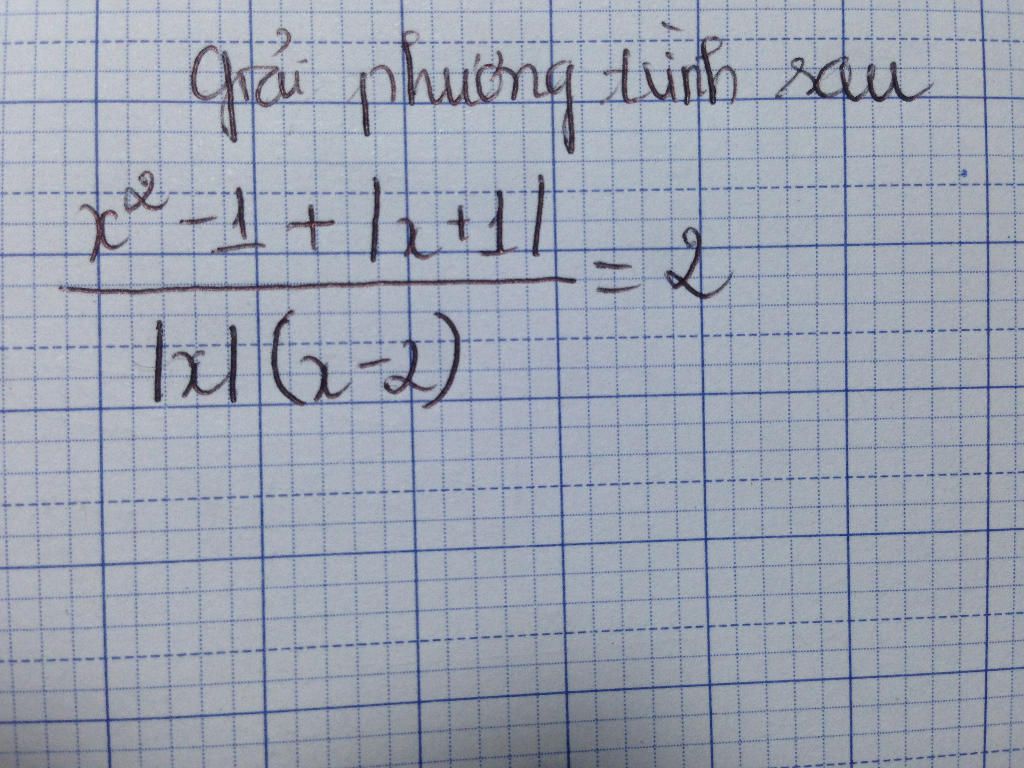 Giải phương trình sau
x² - 1 + |x + 1|
= 2
|x| (x - 2)